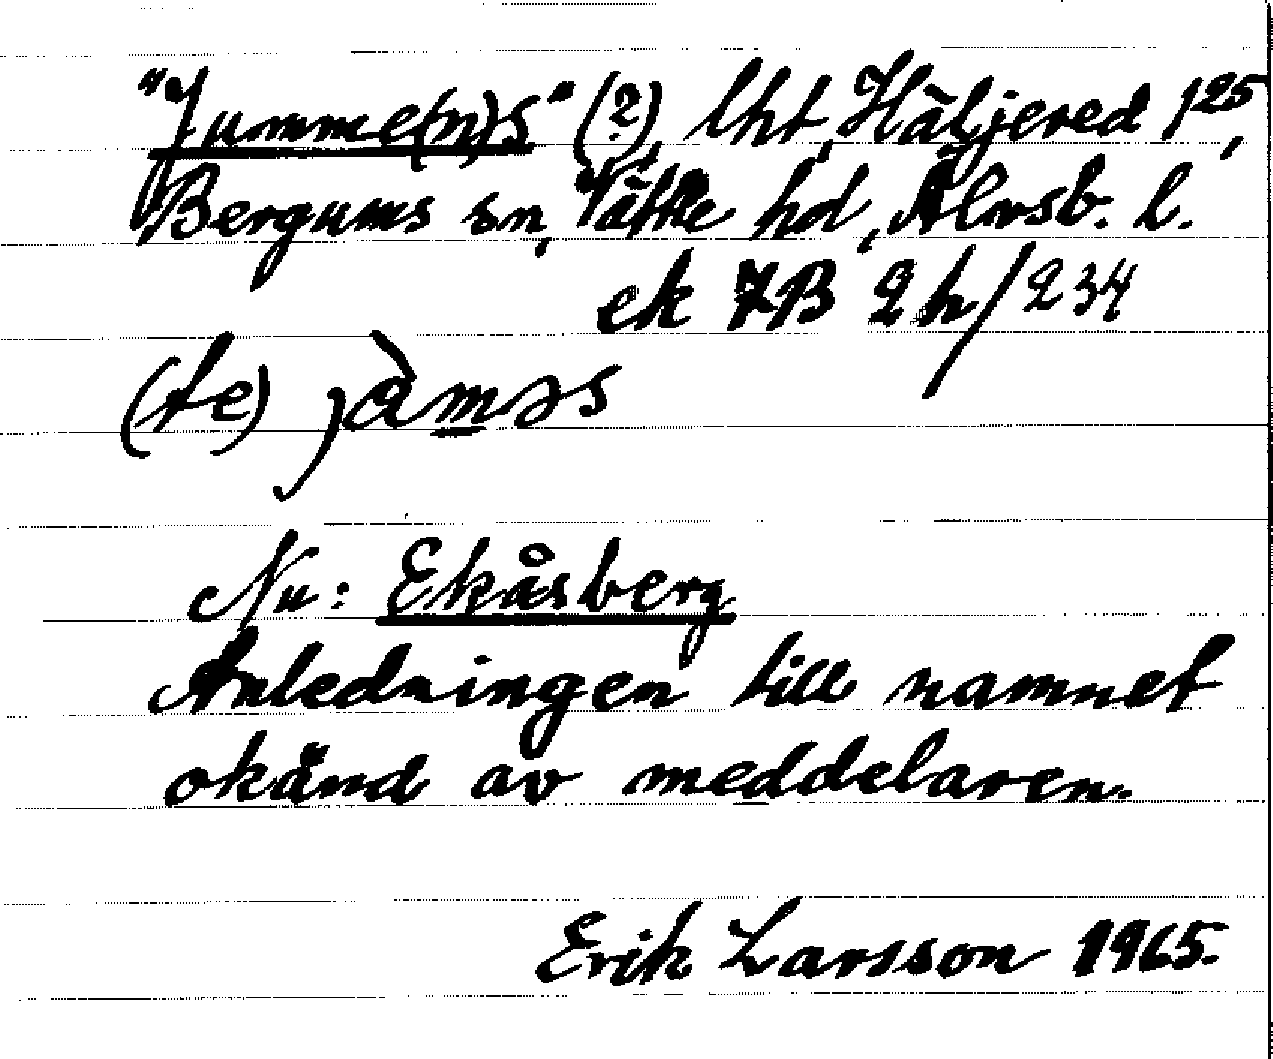 "Jumme(n)s" (?), lht, Häljered 1²⁵,
Bergums sn, Vättle hd, Älvsb. l.
ek 7B 2h/234
(te) jàməs
Nu: Ekåsberg
Anledningen till namnet
okänd av meddelaren.
Erik Larsson 1965.